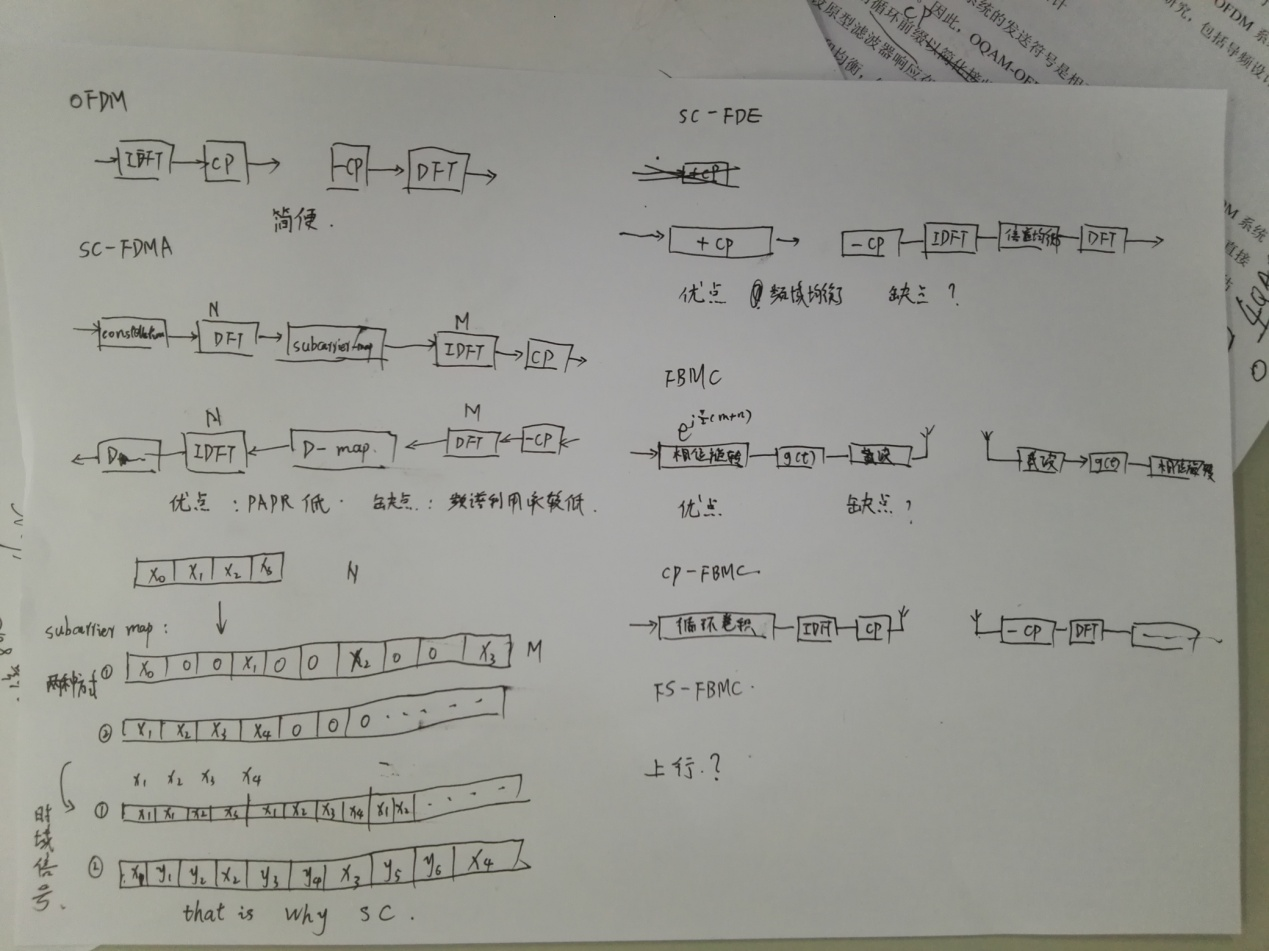 OFDM
IDFT CP -CP DFT
简便.
SC-FDMA
N M
constellation DFT subcarrier-map IDFT CP
N M
IDFT D-map. DFT -CP
优点:PAPR低. 缺点.:频谱利用率较低.
X0 X1 X2 X3 N
subcarrier map:
两种方式 ① X0 0 0 X1 0 0 X2 0 0 X3 M
② X1 X2 X3 X4 0 0 0 . . . . .
X1 X2 X3 X4
① X1 X1 X2 X3 X1 X2 X3 X4 X1 X2 . . . .
时域信号.
② y1 y2 X2 y3 y4 X3 y5 y6 X4
that is why SC.
SC-FDE
+CP
+CP -CP IDFT 信道均衡 DFT
优点 频域均衡 缺点?
FBMC
相位旋转 g(t) 载波 载波 g(t) 相位旋转
优点. 缺点?
CP-FBMC
循环卷积 IDFT CP -CP DFT
FS-FBMC.
上行.?
CP
系统的发送符号是相
因此,OQAM-OF
循环前缀以简化接
原型滤波器响应在
均衡,
OFDM 系
究,包括导频设计
DM 系统
直接